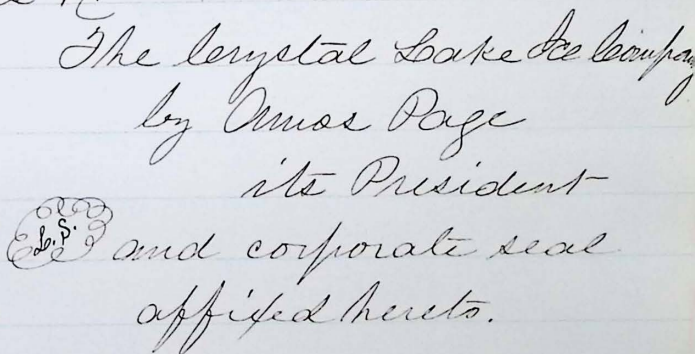 The Crystal Lake Ice Company
by Amos Page
its President
L.S. and corporate seal
affixed hereto.